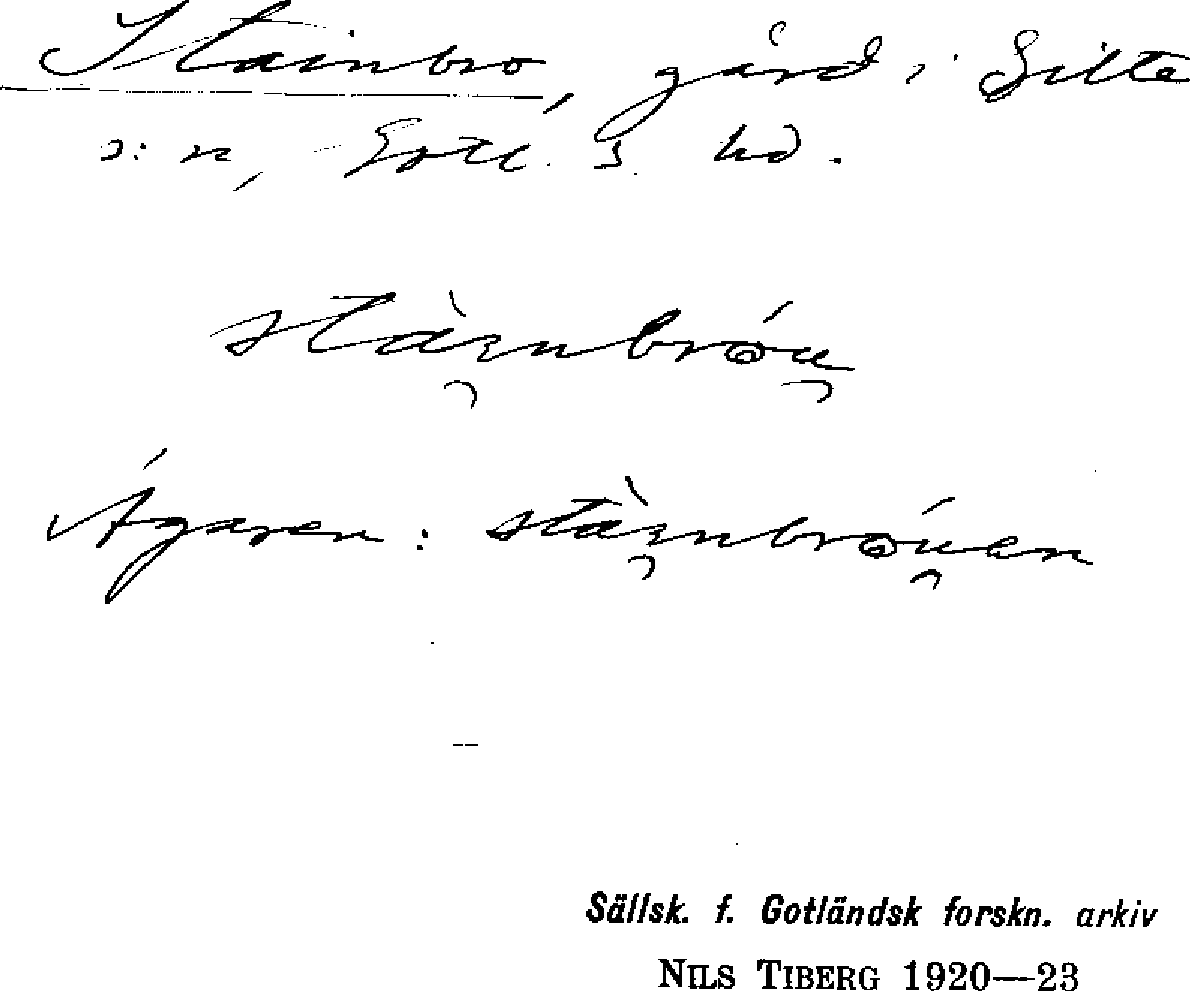 Stainbro, gård i Silte
s:n, Gotl. s. hd.
stàɪ̯nbróu̯
Ägaren: stàɪ̯nbróu̯en
Sällsk. f. Gotländsk forskn. arkiv
NILS TIBERG 1920—23